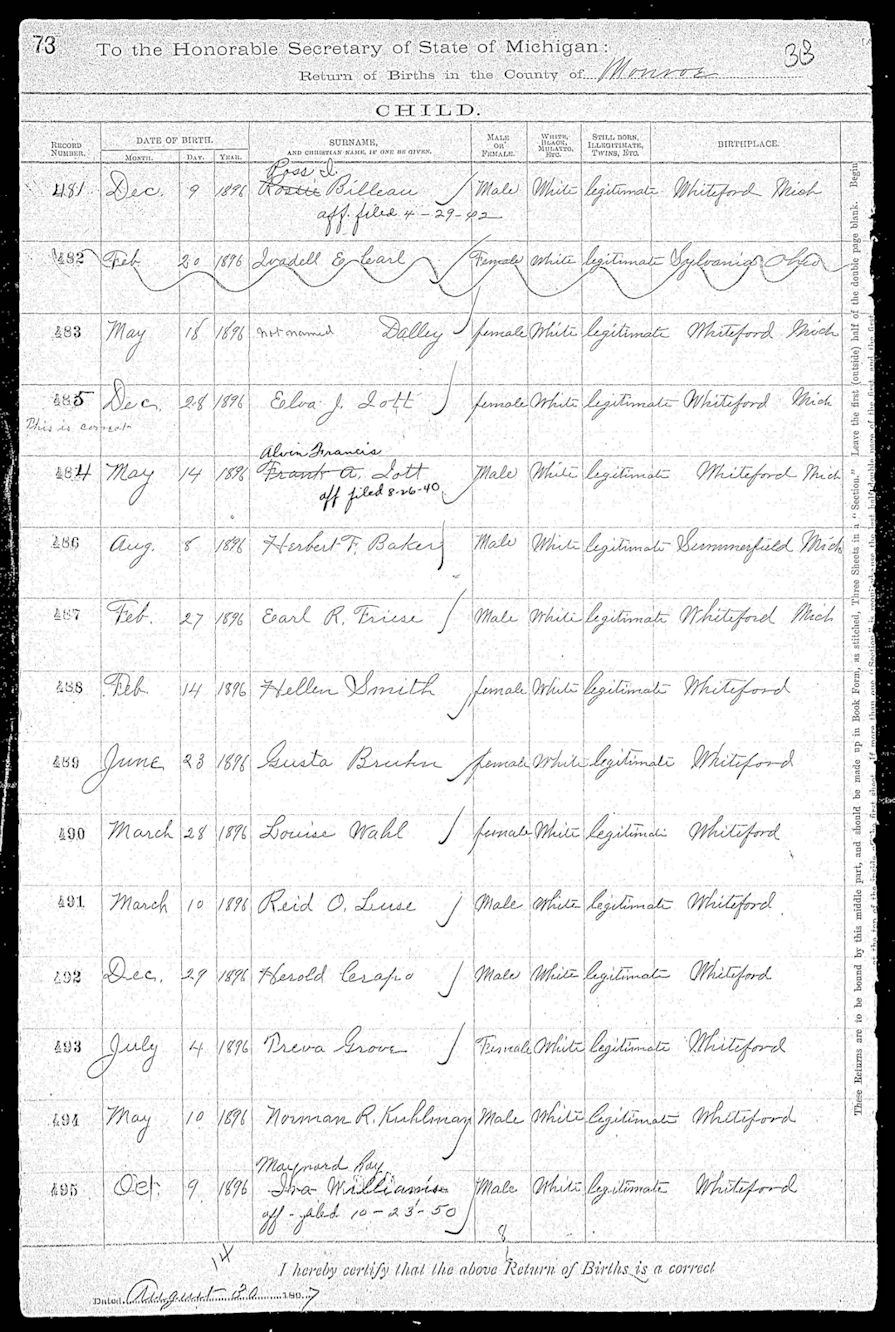 73 To the Honorable Secretary of State of Michigan: 313
Return of Births in the County of Monroe
CHILD.
RECORD NUMBER. DATE OF BIRTH. SURNAME, AND CHRISTIAN NAME, IF ONE BE GIVEN. MALE OR FEMALE. WHITE, BLACK, MULATTO, ETC. STILL BORN, ILLEGITIMATE, TWINS, ETC. BIRTHPLACE.
MONTH. DAY. YEAR.
Ross I.
481 Dec. 9 1896 Billeau Male White legitimate Whiteford Mich
aff. filed 4-29-42
482 Feb 20 1896 Ivadell E Carl Female White legitimate Sylvania Ohio
483 May 18 1896 not named Dalley female White legitimate Whiteford Mich
485 Dec. 28 1896 Elva J. Iott female White legitimate Whiteford Mich
This is correct
Alvin Francis
484 May 14 1896 Frank A. Iott Male White legitimate Whiteford Mich
aff filed 8-26-40
486 Aug. 8 1896 Herbert F. Baker Male White legitimate Summerfield Mich
487 Feb. 27 1896 Earl R. Friese Male White legitimate Whiteford Mich
488 Feb. 14 1896 Hellen Smith female White legitimate Whiteford
489 June 23 1896 Gusta Bruhn female White legitimate Whiteford
490 March 28 1896 Louise Wahl female White legitimate Whiteford
491 March 10 1896 Reid O. Luse Male White legitimate Whiteford
492 Dec. 29 1896 Herold Crapo Male White legitimate Whiteford
493 July 4 1896 Treva Grove Female White legitimate Whiteford
494 May 10 1896 Norman R. Kuhlman Male White legitimate Whiteford
Maynard Ray
495 Oct. 9 1896 Ira Williams Male White legitimate Whiteford
aff. filed 10-23-50
14 8
I hereby certify that the above Return of Births is a correct
Dated August 30 1897
These Returns are to be bound by this middle part, and should be made up in Book Form, as stitched, Three Sheets in a "Section." Leave the first (outside) half of the double page blank. Begin